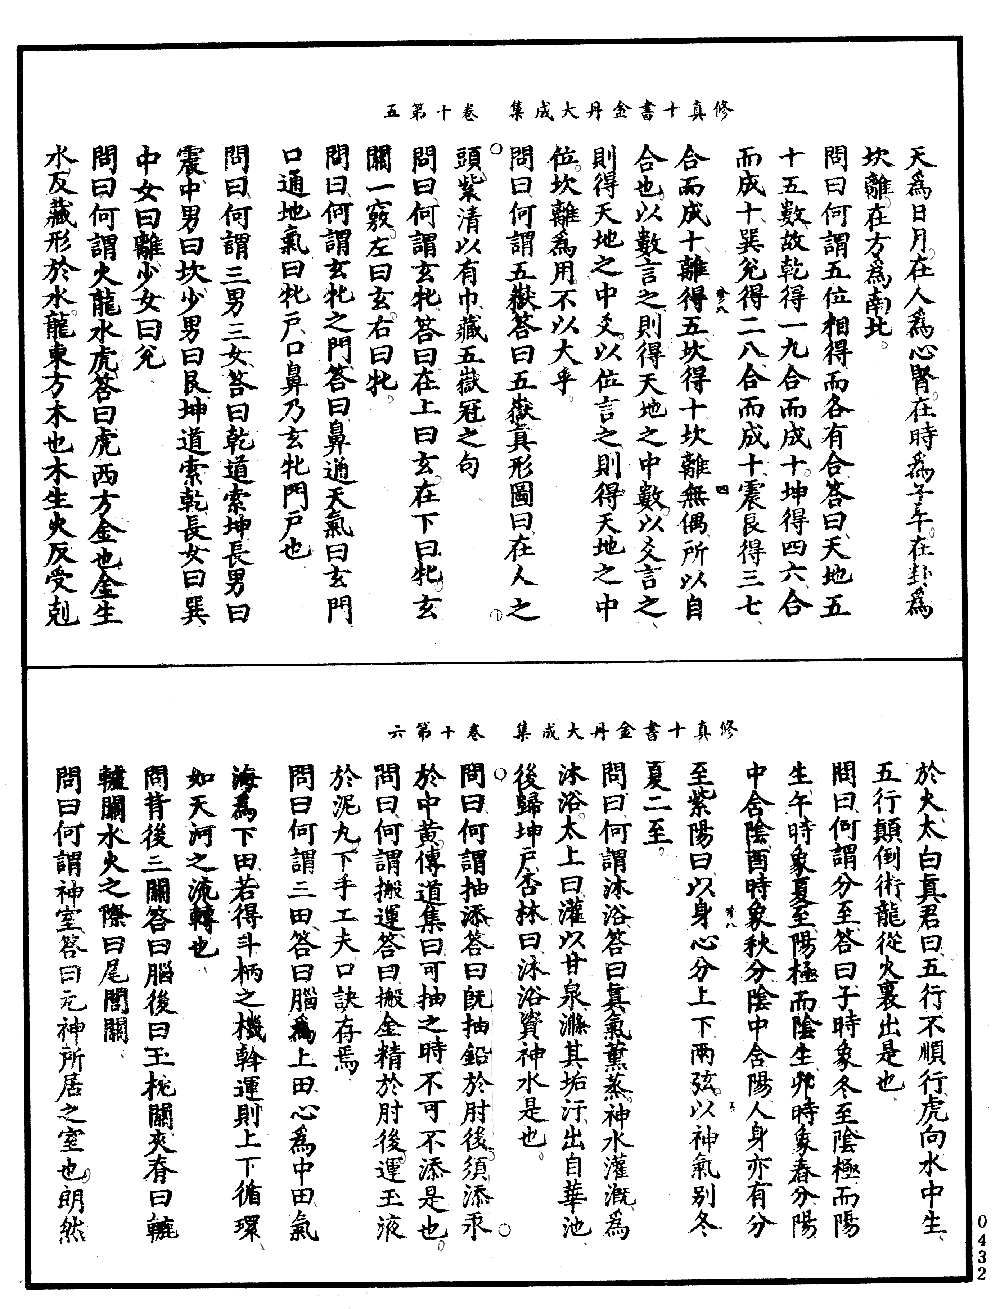 修真十書金丹大成集　卷十第五
天為日月在人為心腎在時為子午在卦為
坎離在方為南北
問曰何謂五位相得而各有合答曰天地五
十五數故乾得一九合而成十坤得四六合
而成十巽兌得二八合而成十震艮得三七
合而成十離得五坎得十坎離無偶所以自
合也以數言之則得天地之中數以爻言之
則得天地之中爻以位言之則得天地之中
位坎離為用不以大乎
問曰何謂五嶽答曰五嶽真形圖曰在人之
頭紫清以有巾藏五嶽冠之句
問曰何謂玄牝答曰在上曰玄在下曰牝玄
關一竅左曰玄右曰牝
問曰何謂玄牝之門答曰鼻通天氣曰玄門
口通地氣曰牝戶口鼻乃玄牝門戶也
問曰何謂三男三女答曰乾道索坤長男曰
震中男曰坎少男曰艮坤道索乾長女曰巽
中女曰離少女曰兌
問曰何謂火龍水虎答曰虎西方金也金生
水反藏形於水龍東方木也木生火反受剋
修真十書金丹大成集　卷十第六
於火太白真君曰五行不順行虎向水中生
五行顛倒術龍從火裏出是也
問曰何謂分至答曰子時象冬至陰極而陽
生午時象夏至陽極而陰生卯時象春分陽
中含陰酉時象秋分陰中含陽人身亦有分
至紫陽曰以身心分上下兩弦以神氣別冬
夏二至
問曰何謂沐浴答曰真氣薰蒸神水灌溉為
沐浴太上曰灌以甘泉滌其垢汙出自華池
後歸坤戶杏林曰沐浴資神水是也
問曰何謂抽添答曰既抽鉛於肘後須添汞
於中黃傳道集曰可抽之時不可不添是也
問曰何謂搬運答曰搬金精於肘後運玉液
於泥丸下手工夫口訣存焉
問曰何謂三田答曰腦為上田心為中田氣
海為下田若得斗柄之機斡運則上下循環
如天河之流轉也
問背後三關答曰腦後曰玉枕關夾脊曰轆
轤關水火之際曰尾閭關
問曰何謂神室答曰元神所居之室也朗然
0432